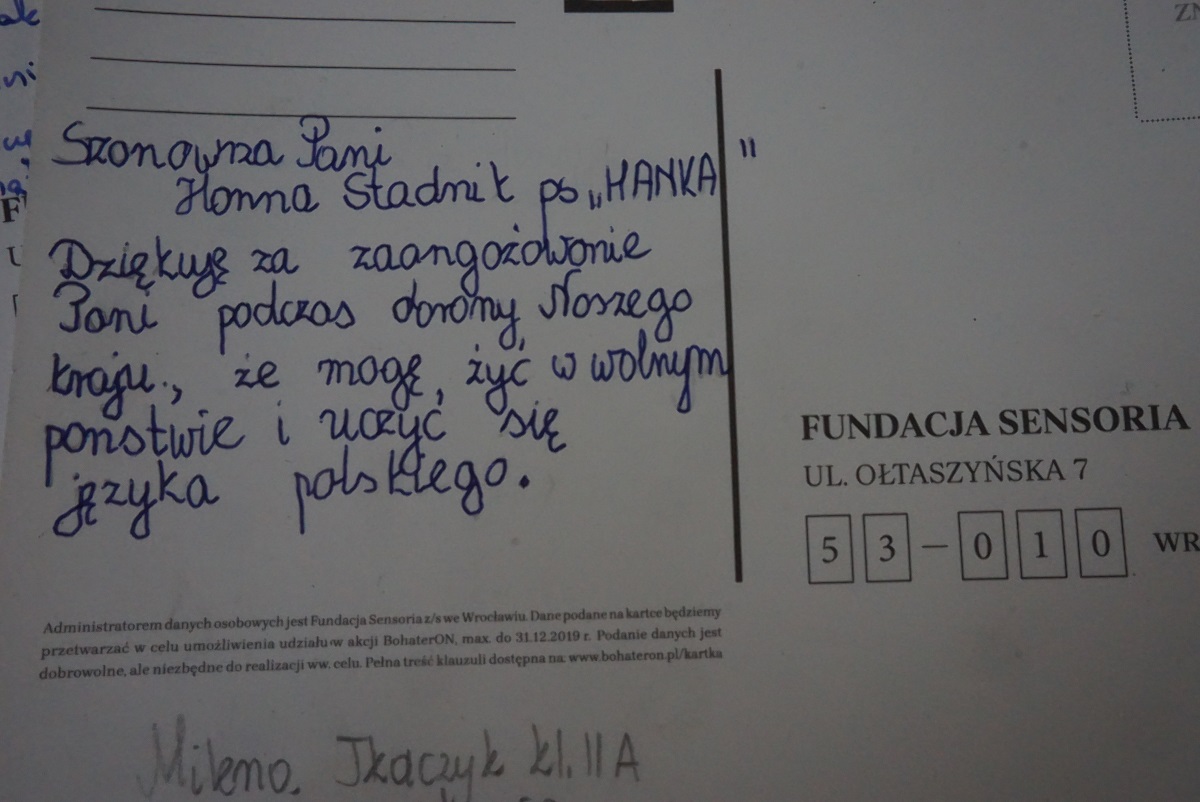 Szanowna Pani
Hanna Stadnik ps „HANKA"
Dziękuję za zaangożowanie
Pani podczas obrony Naszego
kraju., że mogę żyć w wolnym
państwie i uczyć się
języka polskiego.
FUNDACJA SENSORIA
UL. OŁTASZYŃSKA 7
53-010 WR
Administratorem danych osobowych jest Fundacja Sensoria z/s we Wrocławiu. Dane podane na kartce będziemy
przetwarzać w celu umożliwienia udziału w akcji BohaterON, max. do 31.12.2019 r. Podanie danych jest
dobrowolne, ale niezbędne do realizacji ww. celu. Pełna treść klauzuli dostępna na: www.bohateron.pl/kartka
Milena Tkaczyk kl. II A